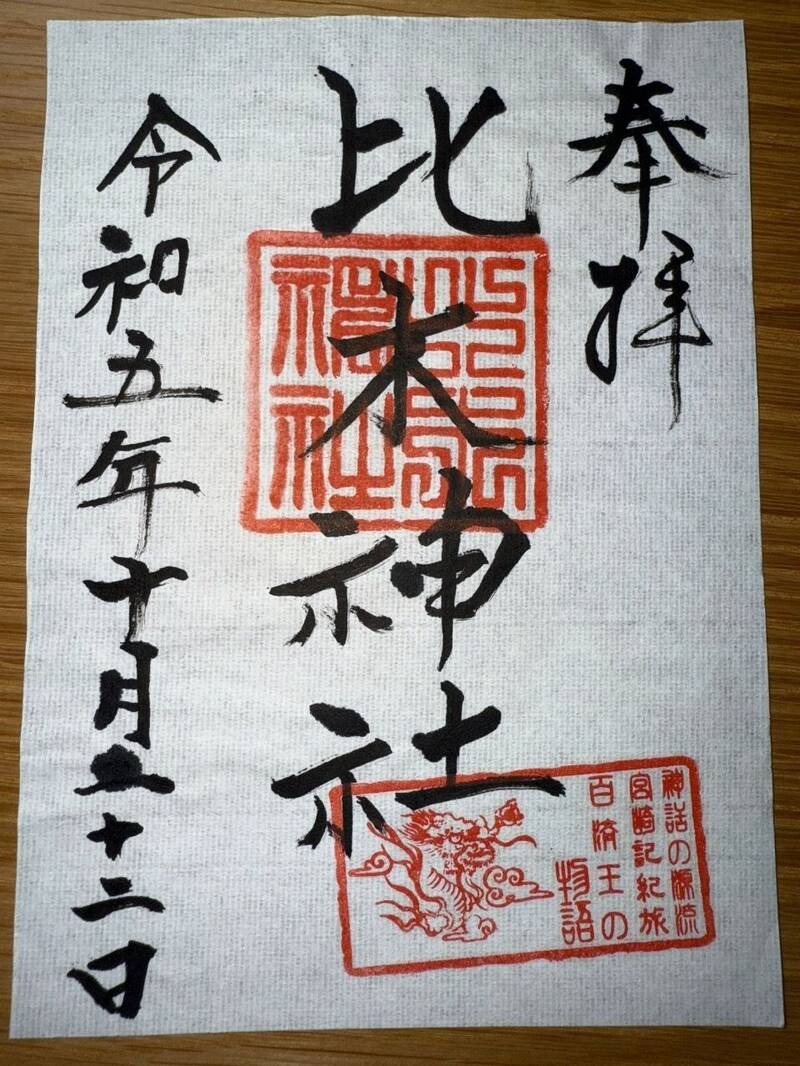 奉拝
比木神社
令和五年十月二十二日
神話の源流
宮崎記紀旅
百済王の
物語